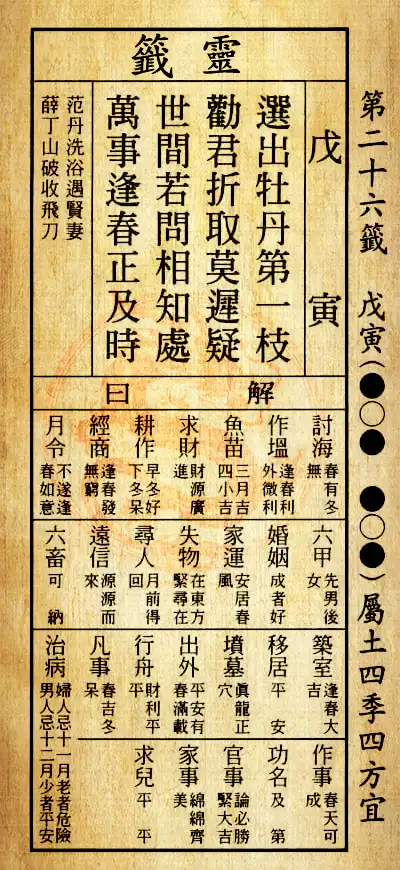 第二十六籤 戊寅(●○● ●○●)屬土四季四方宜
靈籤
戊寅
選出牡丹第一枝
勸君折取莫遲疑
世間若問相知處
萬事逢春正及時
范丹洗浴遇賢妻
薛丁山破收飛刀
解曰
討海 春有冬無
作塭 逢春利外微利
魚苗 三月吉四小吉
求財 財源廣進
耕作 早冬好下冬呆
經商 逢春發無窮
月令 不遂逢春如意
六甲 先男後女
婚姻 成者好
家運 安居春風
失物 在東方緊尋在
尋人 月前得回
遠信 源源而來
六畜 可納
築室 逢春大吉
移居 平安
墳墓 真龍正穴
出外 平安有春滿載
行舟 財利平平
凡事 春吉冬呆
治病 婦人忌十一月老者危險男人忌十二月少者平安
作事 春天可成
功名 及第
官事 論必勝緊大吉
家事 綿綿齊美
求兒 平平